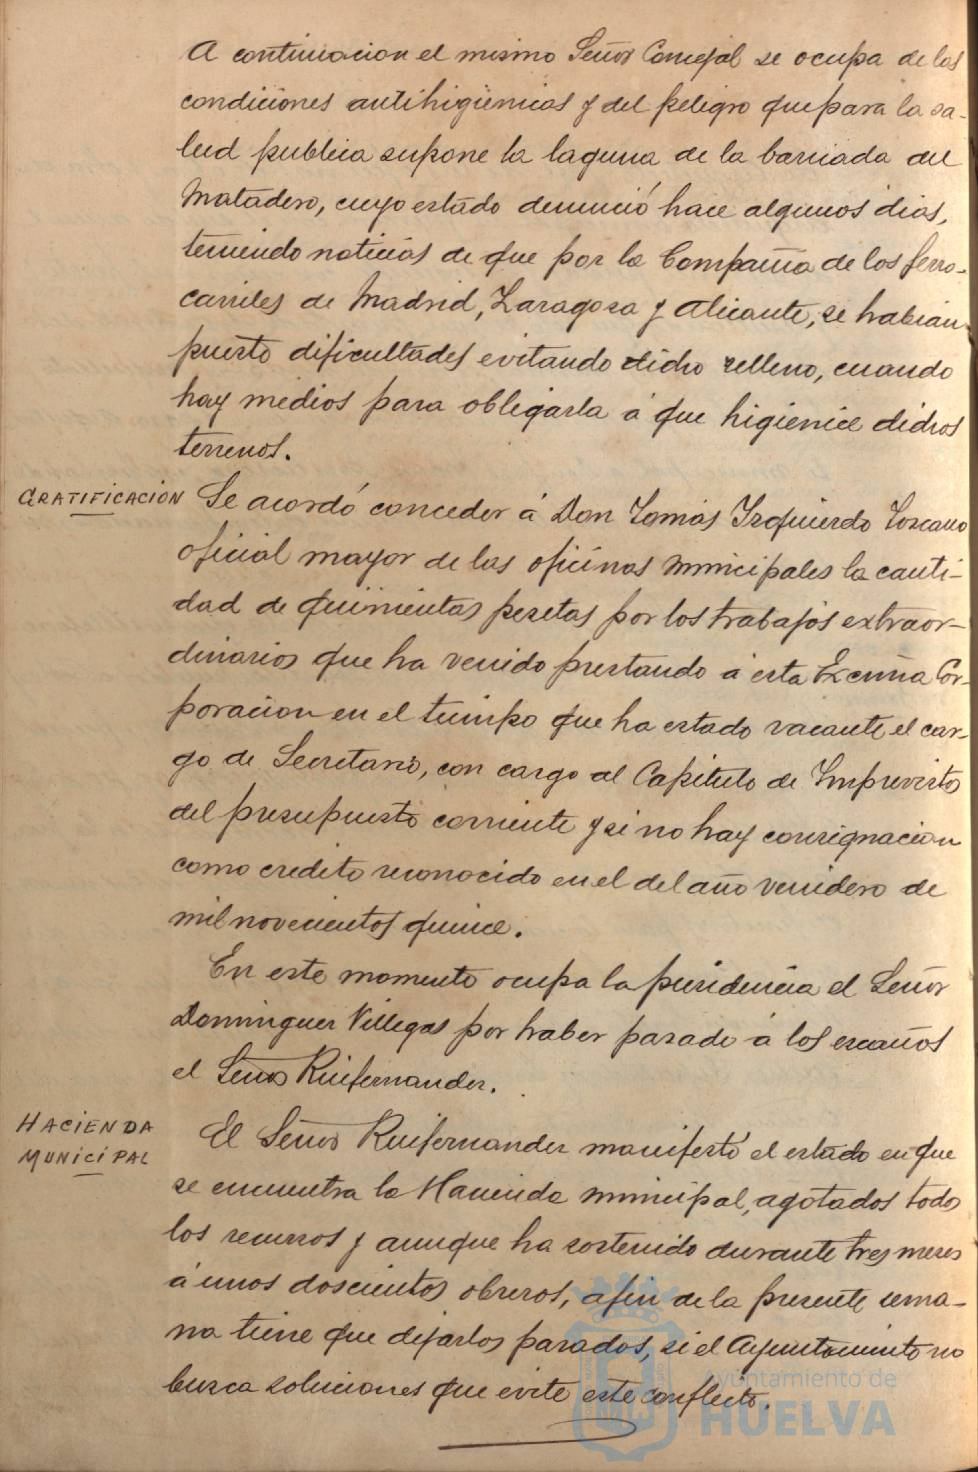 A continuacion el mismo Señor Concejal se ocupa de las
condiciones antihigienicas y del peligro que para la sa-
lud publica supone la laguna de la barriada del
Matadero, cuyo estado denunció hace algunos dias,
teniendo noticias de que por la Compañia de los ferro-
carriles de Madrid, Zaragoza y Alicante, se habian
puesto dificultades evitando dicho relleno, cuando
hay medios para obligarla á que higienice dichos
terrenos.
GRATIFICACIÓN
Se acordó conceder á Don Tomás Izquierdo Toscano
oficial mayor de las oficinas municipales la canti-
dad de quinientas pesetas por los trabajos extraor-
dinarios que ha venido prestando á esta Excma Cor-
poracion en el tiempo que ha estado vacante el car-
go de Secretario, con cargo al Capitulo de Imprevistos
del presupuesto corriente y si no hay consignacion
como credito reconocido en el del año venidero de
mil novecientos quince.
En este momento ocupa la presidencia el Señor
Dominguez Villegas por haber pasado á los escaños
el Señor Ruifernandez.
HACIENDA
MUNICIPAL
El Señor Ruifernandez manifestó el estado en que
se encuentra la Hacienda municipal, agotados todos
los recursos y aunque ha sostenido durante tres meses
á unos doscientos obreros, á fin de la presente sema-
na tiene que dejarlos parados, si el Ayuntamiento no
busca soluciones que evite este conflicto.
Ayuntamiento de
HUELVA